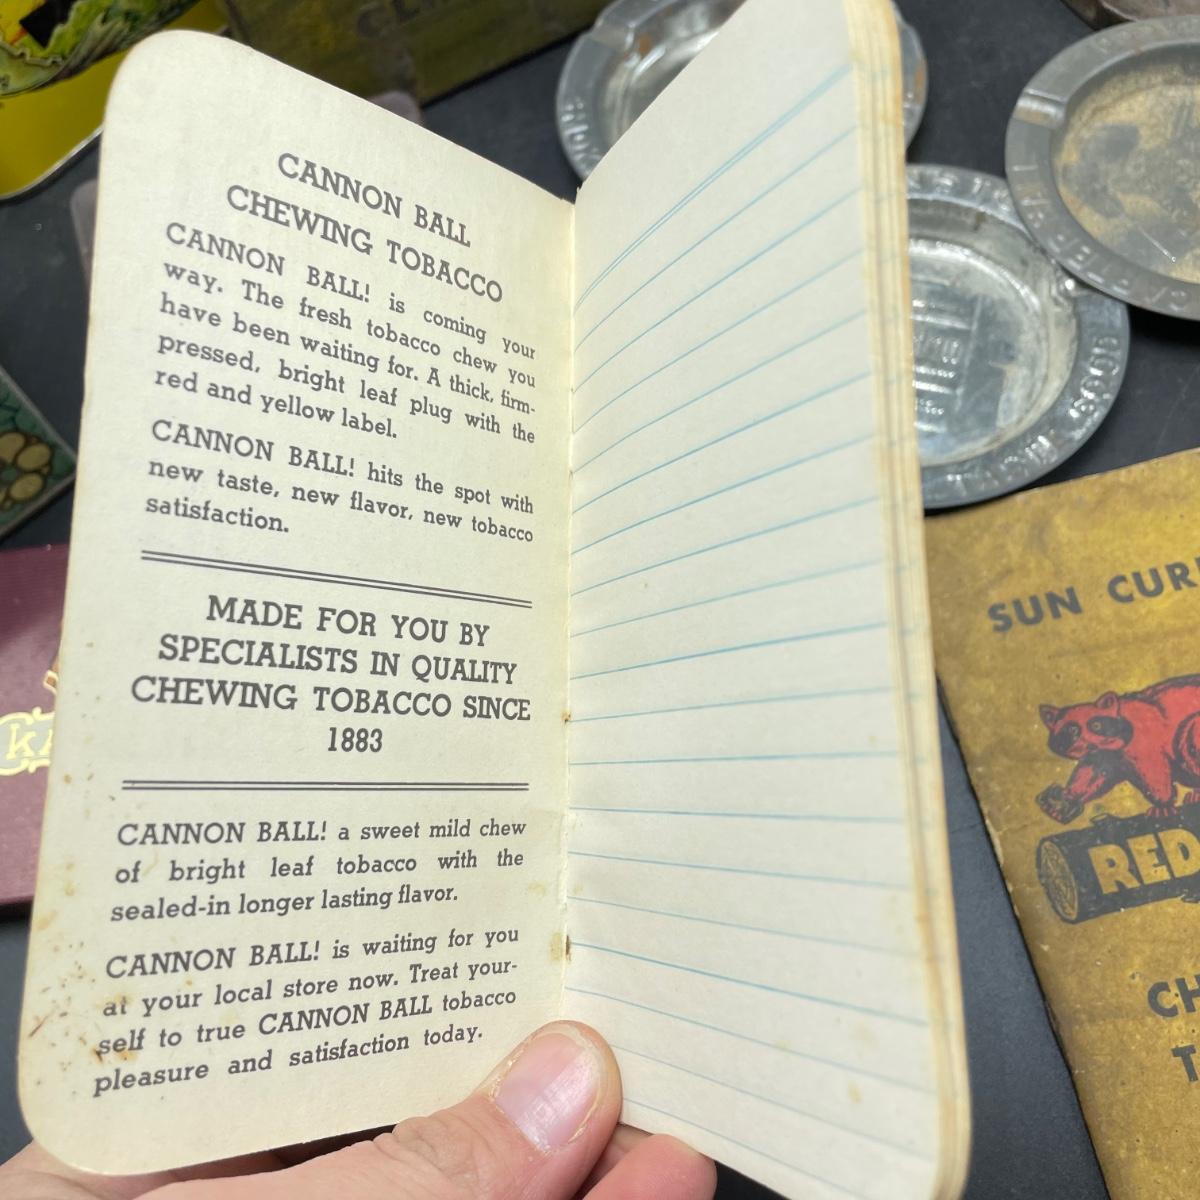 CANNON BALL
CHEWING TOBACCO
CANNON BALL! is coming your
way. The fresh tobacco chew you
have been waiting for. A thick, firm-
pressed, bright leaf plug with the
red and yellow label.
CANNON BALL! hits the spot with
new taste, new flavor, new tobacco
satisfaction.
MADE FOR YOU BY
SPECIALISTS IN QUALITY
CHEWING TOBACCO SINCE
1883
CANNON BALL! a sweet mild chew
of bright leaf tobacco with the
sealed-in longer lasting flavor.
CANNON BALL! is waiting for you
at your local store now. Treat your-
self to true CANNON BALL tobacco
pleasure and satisfaction today.
SUN CUR
RED
CH
T